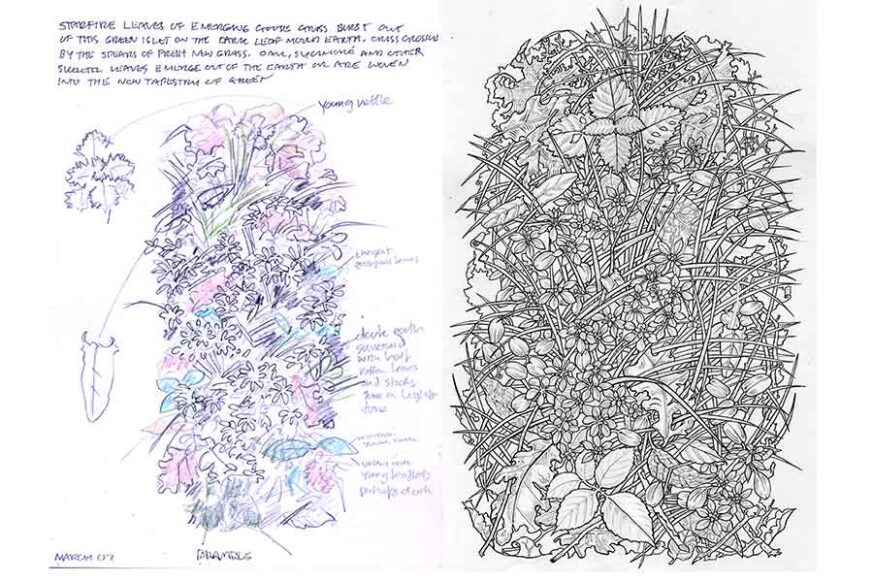 STARFIRE LEAVES OF EMERGING GOOSE GRASS BURST OUT
OF THIS GREEN ISLET ON THE DARK LEAF MOULD EARTH. CRISS CROSSED
BY THE SPEARS OF FRESH NEW GRASS. OAK, SYCAMORE AND OTHER
SKELETAL LEAVES EMERGE OUT OF THE EARTH OR ARE WOVEN
INTO THE NEW TAPESTRY OF GREEN
young nettle
Emergent
dark earth
surround
with half
rotten leaves
and sticks
tone
young leaflets
perhaps dock
MARCH 07
BRAMBLES